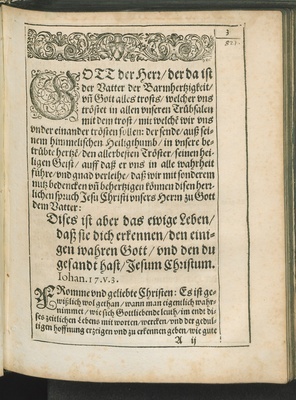 3
GOTT der Herr/ der da ist
der Vatter der Barmhertzigkeit/
vñ Gott alles trosts/ welcher vns
tröstet in allen vnseren Trübsalen
mit dem trost/ mit welchē wir vns
vnder einander trösten sollen: der sende/ auß sei-
nem himmelischen Heiligthumb/ in vnsere be-
trübte hertzē/ den allerbesten Tröster/ seinen hei-
ligen Geist/ auff daß er vns in alle wahrheit
führe/ vnd gnad verleihe/ daß wir mit sonderem
nutz bedencken vñ behertzigen können disen herr-
lichen spruch Jesu Christi vnsers Herrn zu Gott
dem Vatter:
Dises ist aber das ewige Leben/
daß sie dich erkennen/ den eini-
gen wahren Gott/ vnd den du
gesandt hast/ Jesum Christum.
Iohan. 17. v. 3.
FRomme vnd geliebte Christen: Es ist ge-
wißlich wol gethan/ wann man eigentlich wahr-
nimmet/ wie sich Gottliebende leuth/ im endt di-
ses zeitlichen Lebens mit worten/ wercken/ vnd der gedul-
tigen hoffnung erzeigen vnd zu erkennen geben/ wie gute
A ij